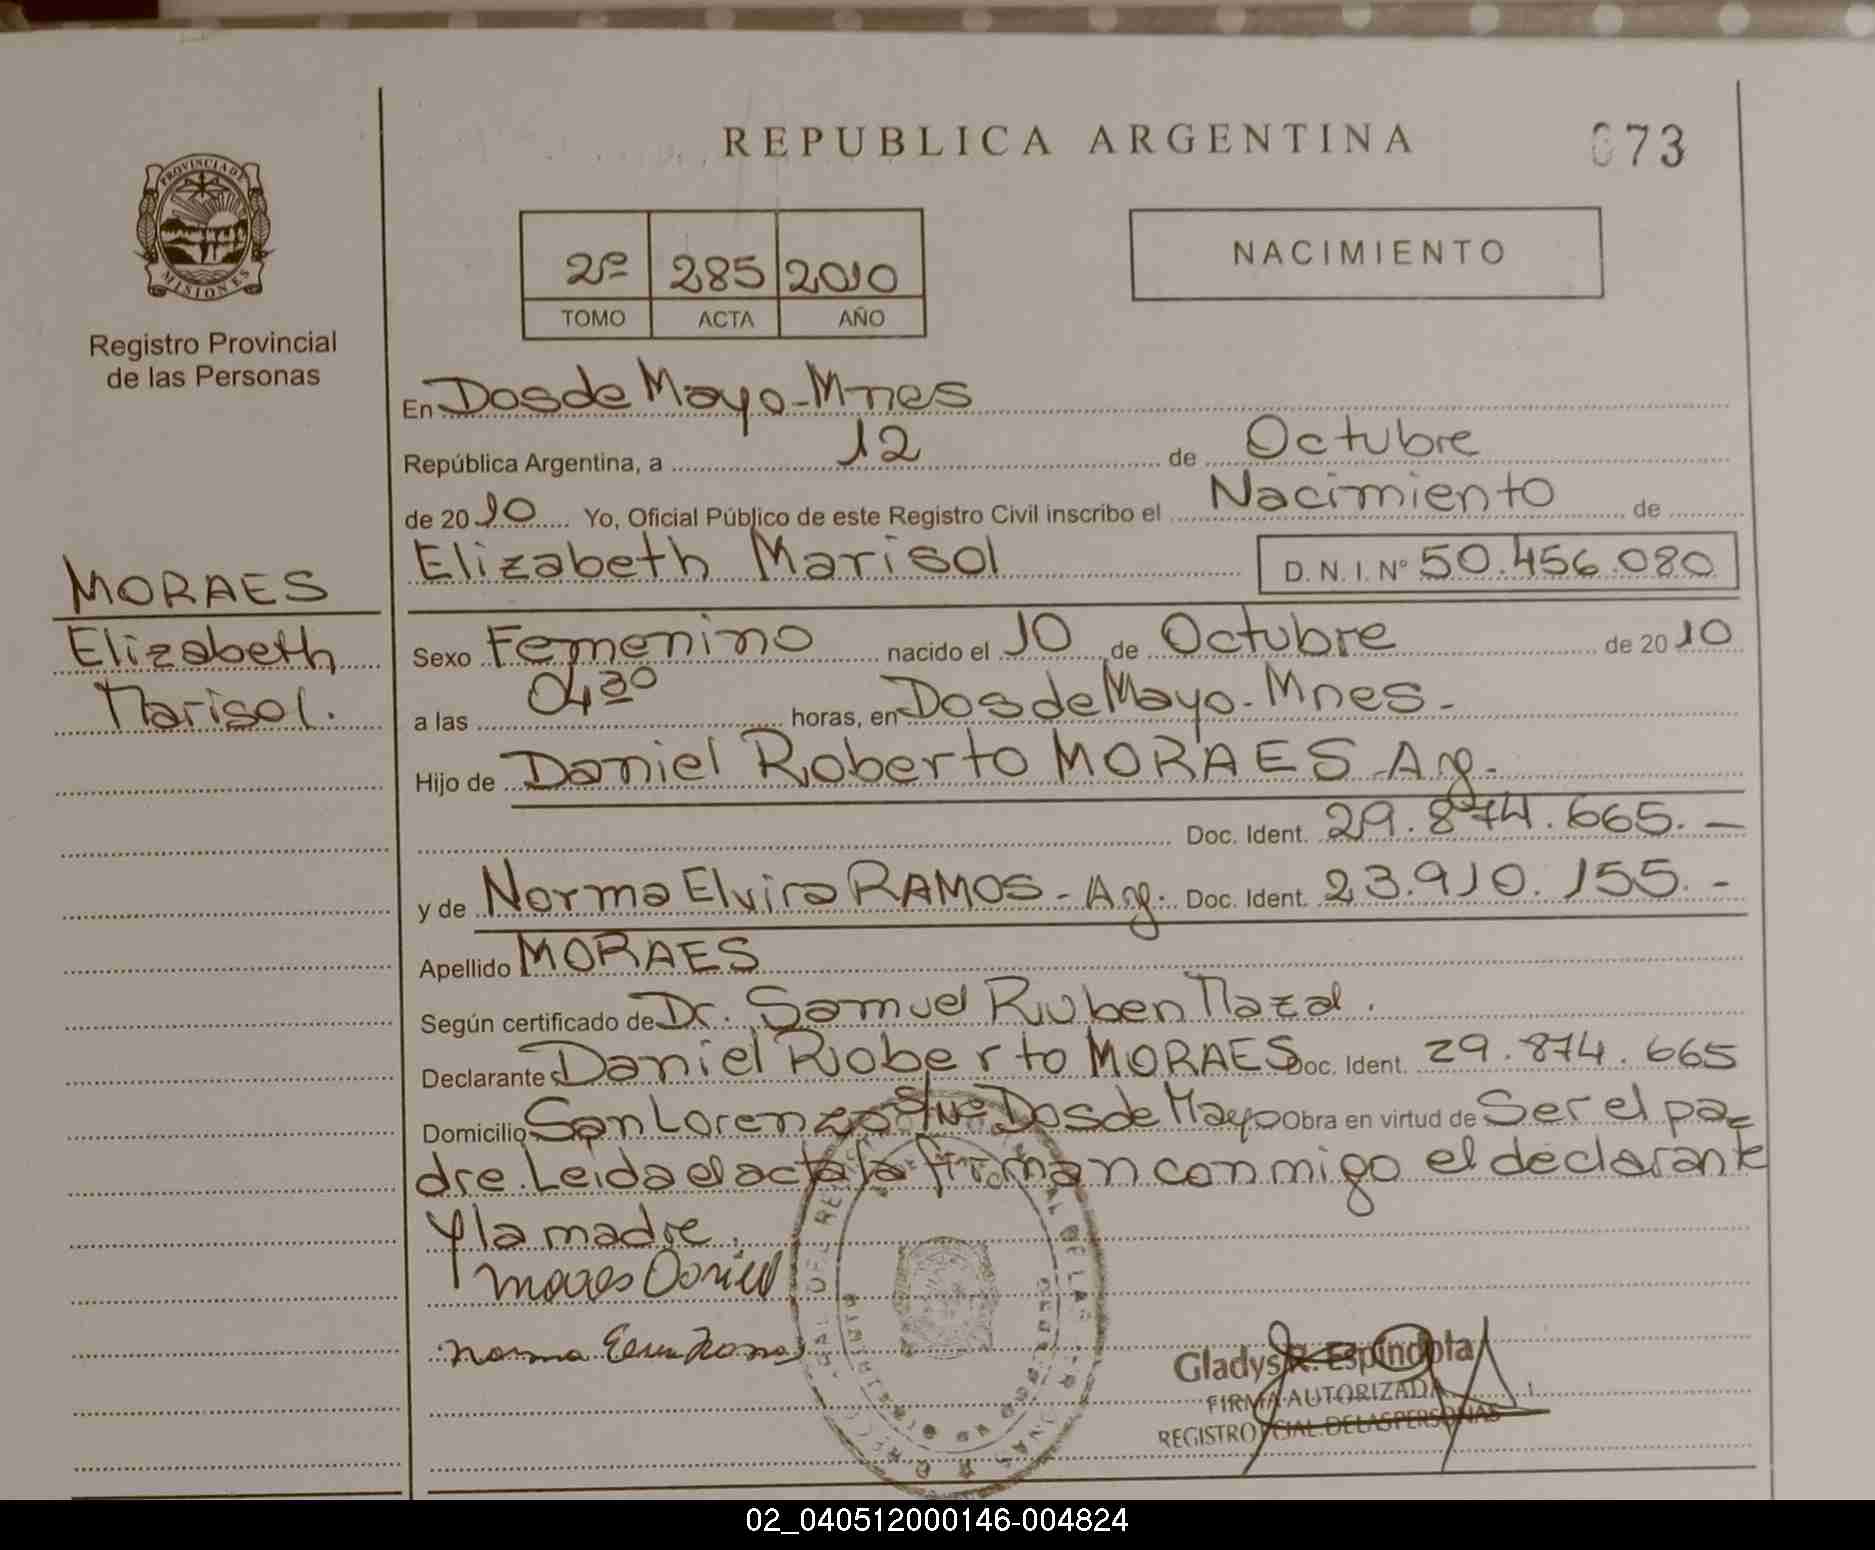 REPUBLICA ARGENTINA
073
PROVINCIA DE
MISIONES
Registro Provincial
de las Personas
2º 285 2010
TOMO ACTA AÑO
NACIMIENTO
En Dos de Mayo - Mnes
República Argentina, a 12 de Octubre
de 2010 Yo, Oficial Público de este Registro Civil inscribo el Nacimiento de
Elizabeth Marisol D.N.I. Nº 50.456.080
MORAES
Elizabeth
Marisol.
Sexo Femenino nacido el 10 de Octubre de 2010
a las 04 30 horas, en Dos de Mayo - Mnes -
Hijo de Daniel Roberto MORAES Arg.-
Doc. Ident. 29.874.665.-
y de Norma Elvira RAMOS - Arg. Doc. Ident. 23.910.155.-
Apellido MORAES
Según certificado de Dr. Samuel Ruben Mazal.
Declarante Daniel Roberto MORAES Doc. Ident. 29.874.665
Domicilio San Lorenzo Dos de Mayo Obra en virtud de Ser el pa=
dre. Leida el acta la firman conmigo el declarante
y la madre.
Moraes Daniel
Norma
Gladys R. Espindola
FIRMA AUTORIZADA
REGISTRO PCIAL. DE LAS PERSONAS
02_040512000146-004824